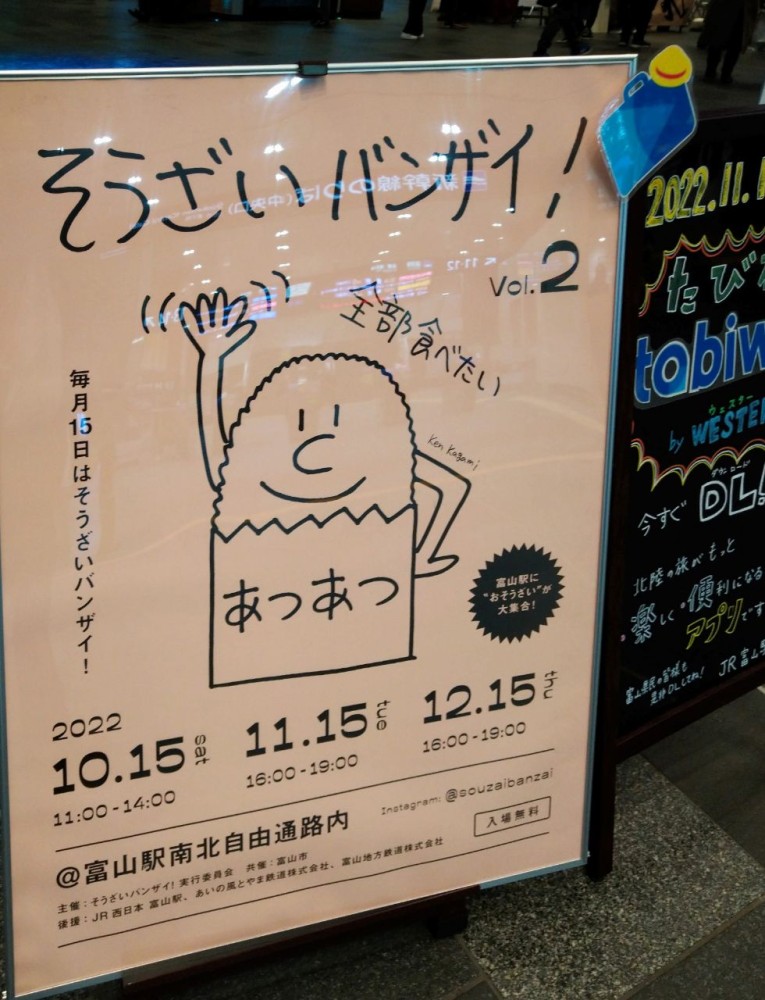 そうざいバンザイ!
Vol.2
全部食べたい
毎月15日はそうざいバンザイ!
Ken Kagami
あつあつ
富山駅に
"おそうざい"が
大集合!
2022
10.15 sat
11:00-14:00
11.15 tue
16:00-19:00
12.15 thu
16:00-19:00
@富山駅南北自由通路内
Instagram: @souzaibanzai
入場無料
主催:そうざいバンザイ! 実行委員会 共催:富山市
後援:JR西日本 富山駅、あいの風とやま鉄道株式会社、富山地方鉄道株式会社
2022.11.
たび
tabiw
ウェスター
by WESTE
ダウンロード
今すぐ DL!
北陸の旅がもっと
楽しく便利になる
アプリです
富山県民の皆様も
是非DLしてね!
JR富山